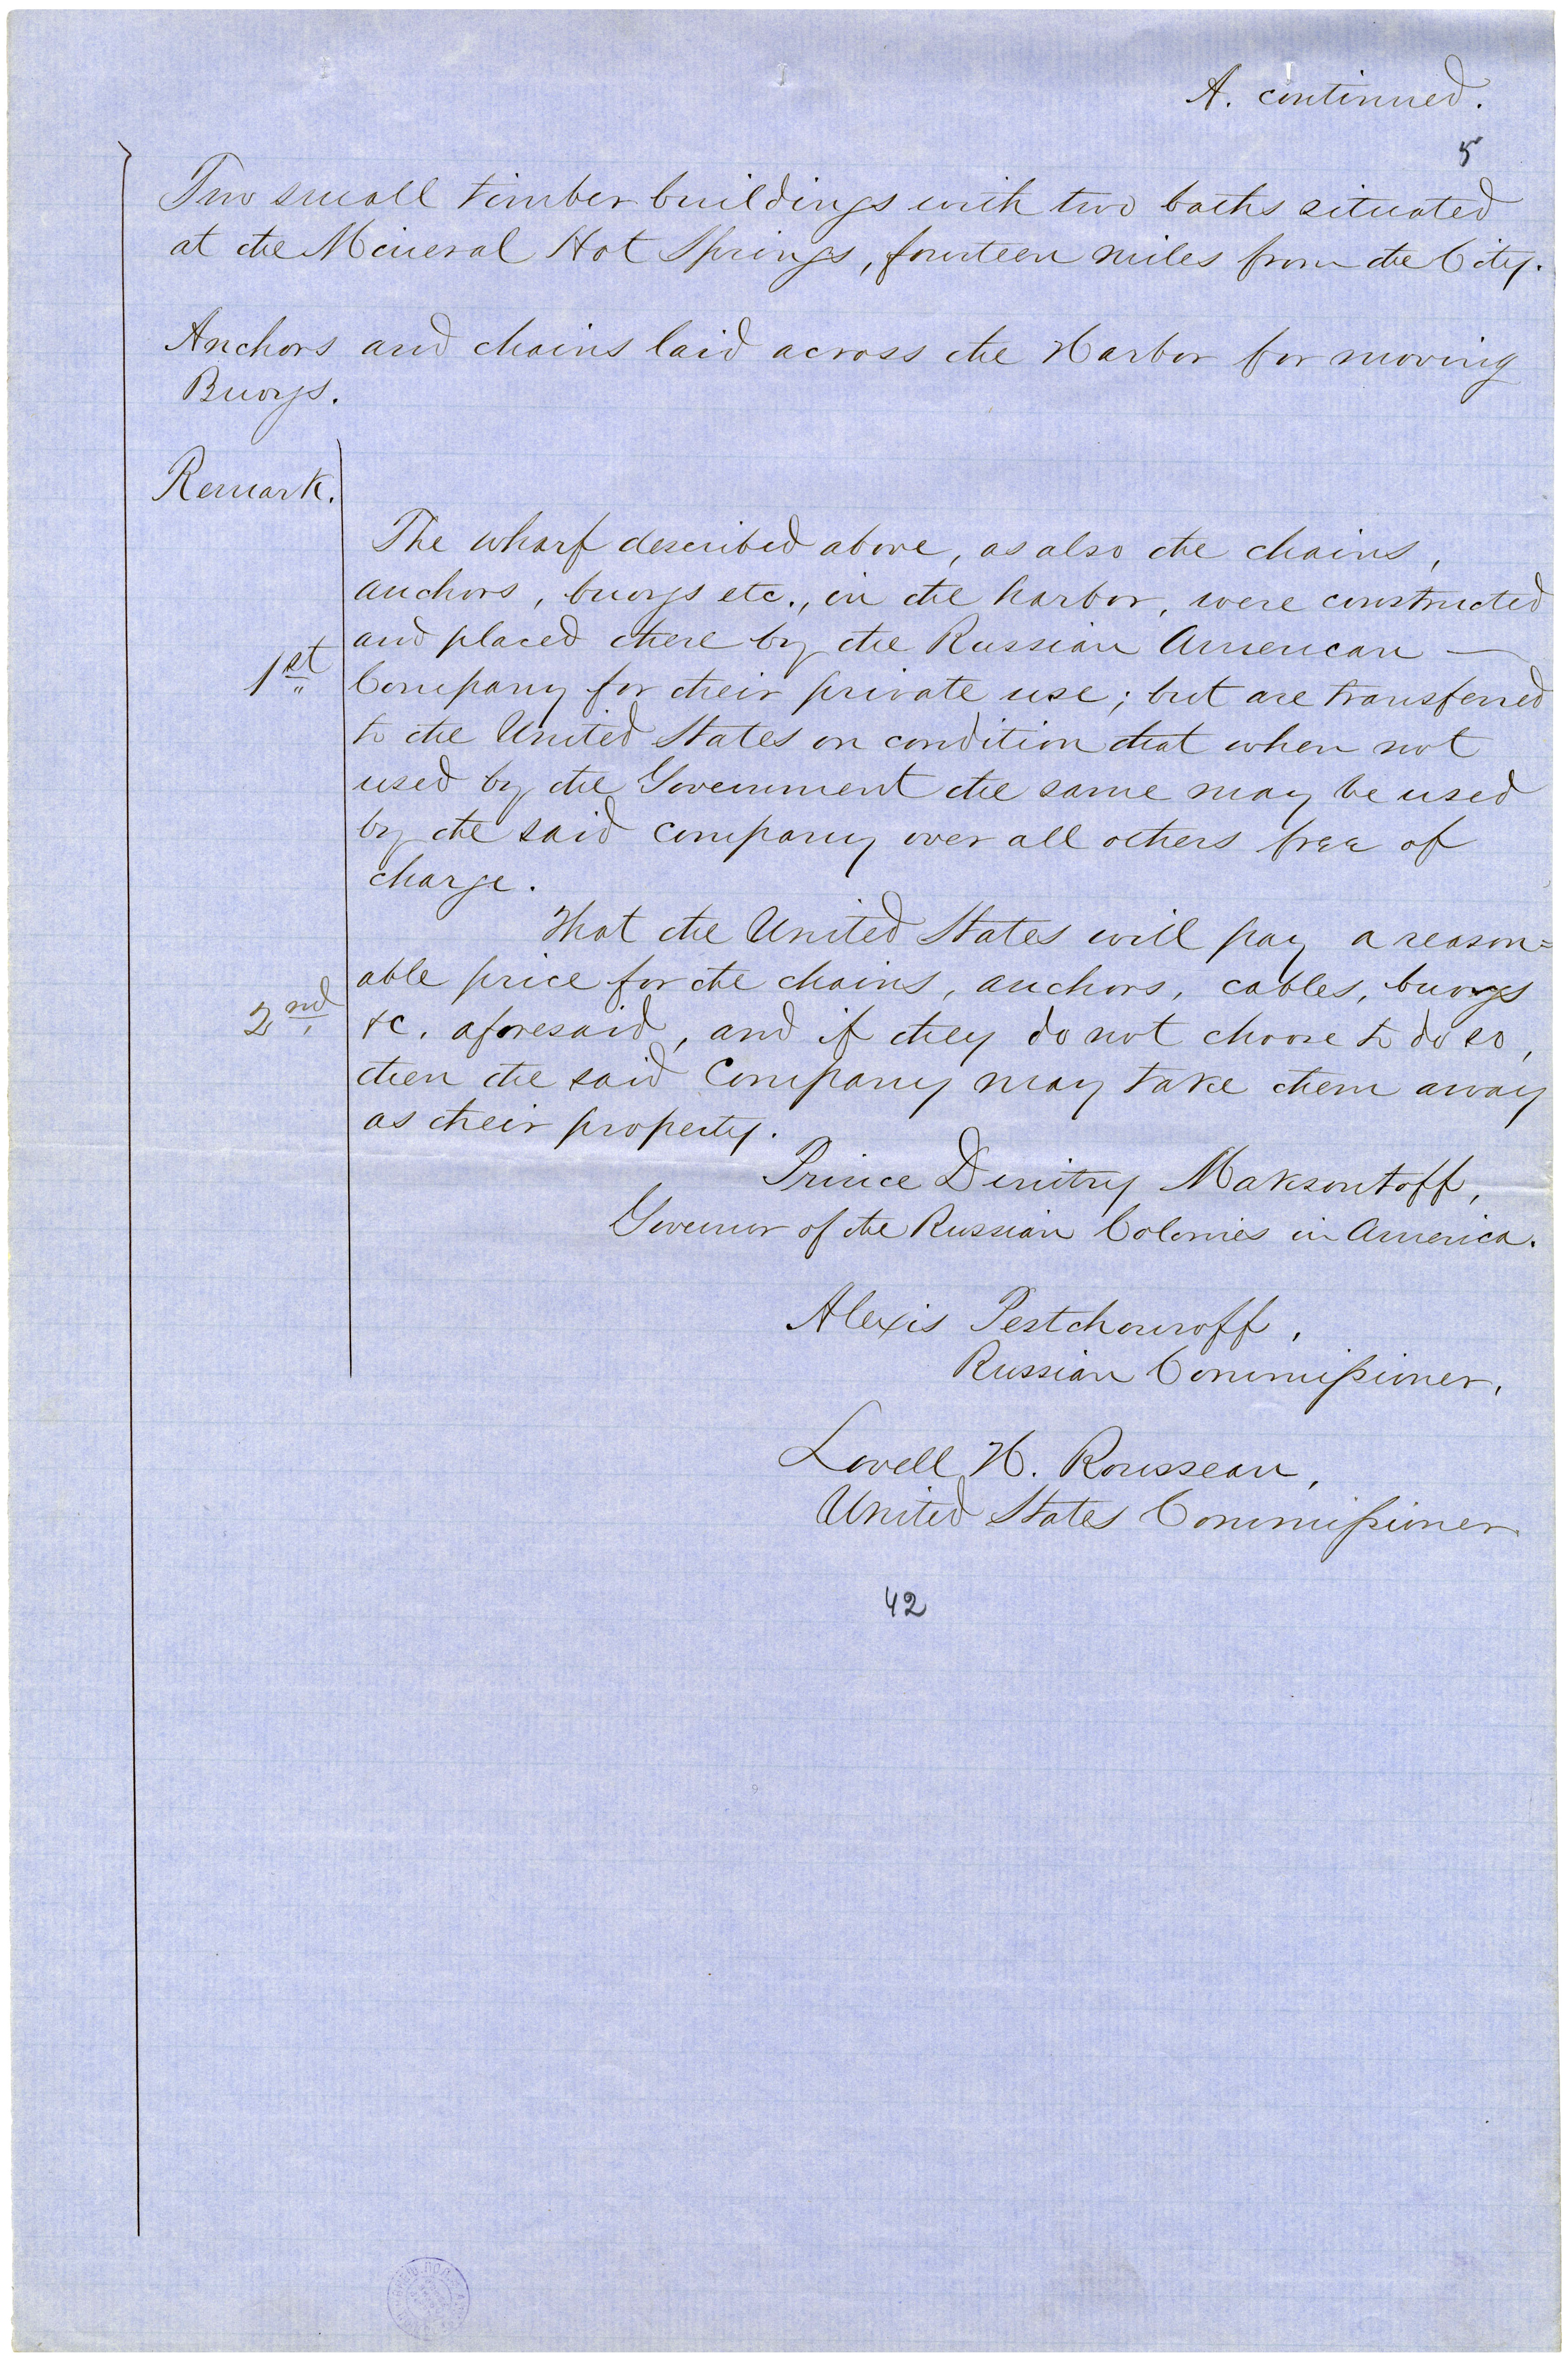 A. continued.
5
Two small timber buildings with two baths situated
at the Mineral Hot Springs, fourteen miles from the City.
Anchors and chains laid across the Harbor for moving
Buoys.
Remark.
The wharf described above, as also the chains,
anchors, buoys etc., in the harbor, were constructed
and placed there by the Russian American —
1st
Company for their private use; but are transferred
to the United States on condition that when not
used by the Government the same may be used
by the said company over all others free of
charge.
That the United States will pay a reason=
able price for the chains, anchors, cables, buoys
2nd
&c. aforesaid, and if they do not choose to do so,
then the said Company may take them away
as their property.
Prince Dmitry Maksoutoff,
Governor of the Russian Colonies in America.
Alexis Pestchouroff,
Russian Commissioner,
Lovell H. Rousseau,
United States Commissioner.
42